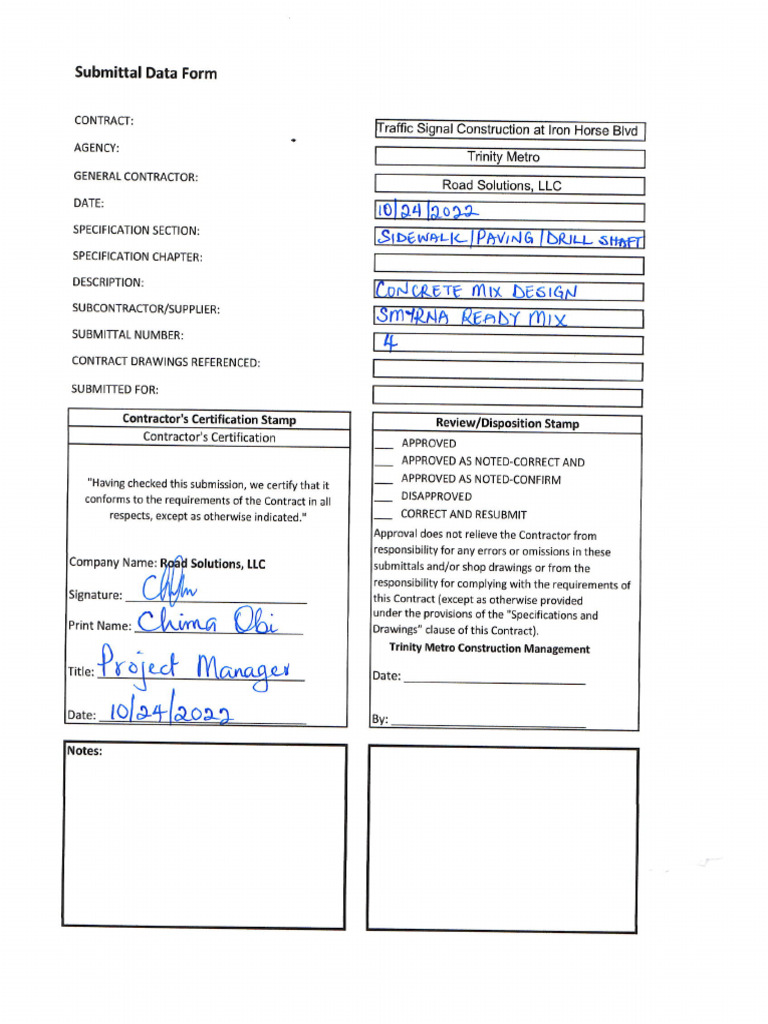 Submittal Data Form
CONTRACT: Traffic Signal Construction at Iron Horse Blvd
AGENCY: Trinity Metro
GENERAL CONTRACTOR: Road Solutions, LLC
DATE: 10/24/2022
SPECIFICATION SECTION: SIDEWALK/PAVING/DRILL SHAFT
SPECIFICATION CHAPTER:
DESCRIPTION: CONCRETE MIX DESIGN
SUBCONTRACTOR/SUPPLIER: SMYRNA READY MIX
SUBMITTAL NUMBER: 4
CONTRACT DRAWINGS REFERENCED:
SUBMITTED FOR:
Contractor's Certification Stamp
Contractor's Certification
"Having checked this submission, we certify that it
conforms to the requirements of the Contract in all
respects, except as otherwise indicated."
Company Name: Road Solutions, LLC
Signature:
Print Name: Chima Obi
Title: Project Manager
Date: 10/24/2022
Review/Disposition Stamp
___ APPROVED
___ APPROVED AS NOTED-CORRECT AND
___ APPROVED AS NOTED-CONFIRM
___ DISAPPROVED
___ CORRECT AND RESUBMIT
Approval does not relieve the Contractor from
responsibility for any errors or omissions in these
submittals and/or shop drawings or from the
responsibility for complying with the requirements of
this Contract (except as otherwise provided
under the provisions of the "Specifications and
Drawings" clause of this Contract).
Trinity Metro Construction Management
Date:
By:
Notes: